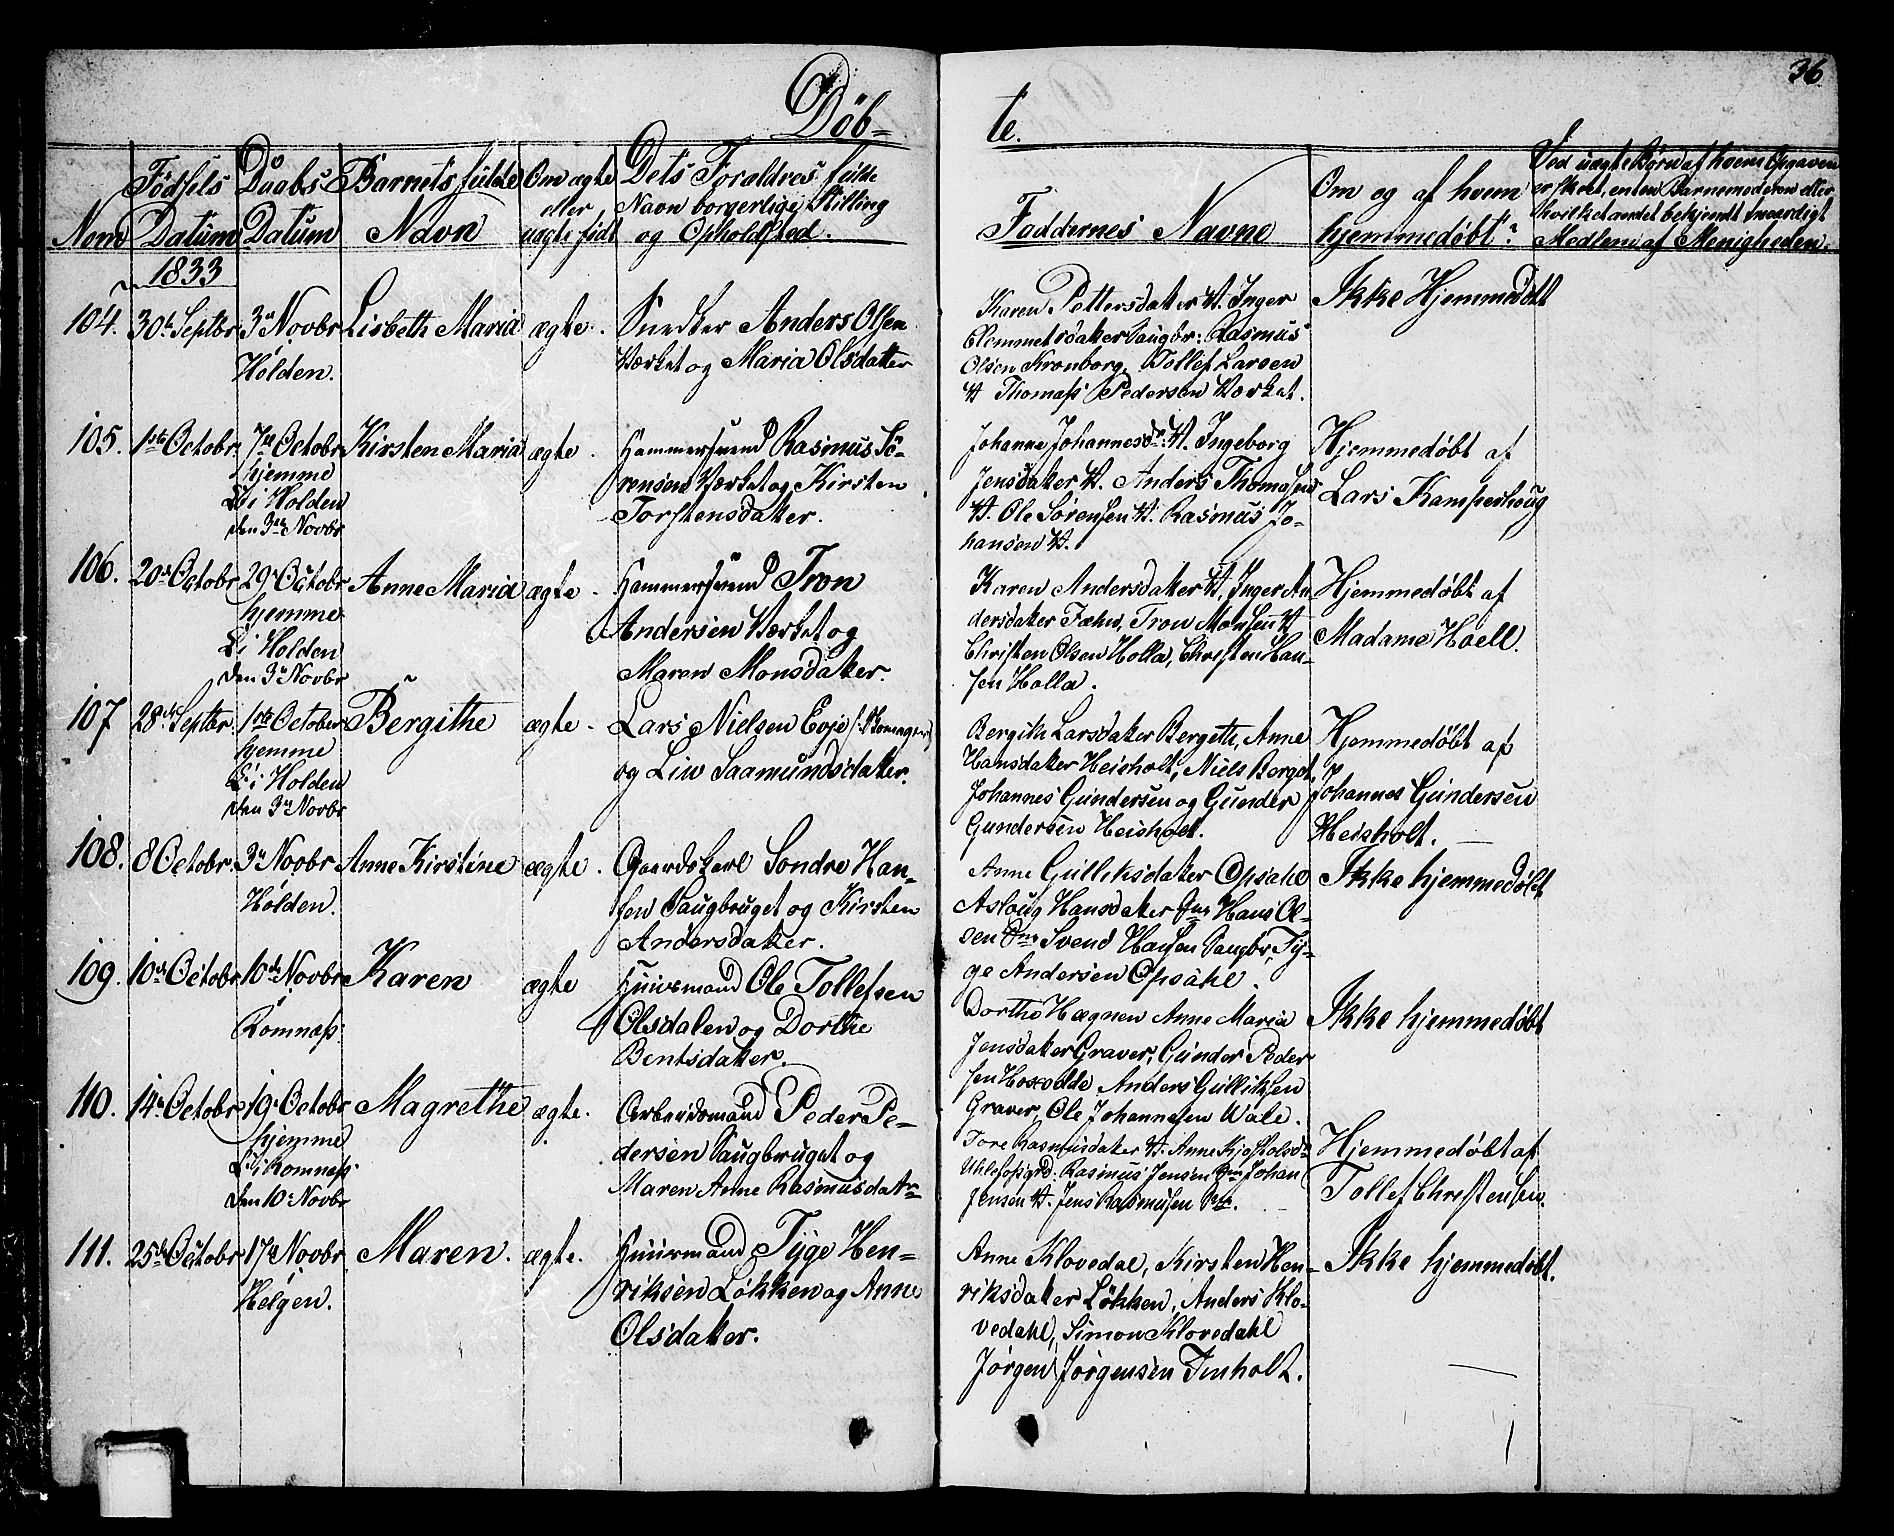 Döb-
te.
36
Nom
Födsels Datum
Daabs Datum
Barnets fulde Navn
Om ægte eller uægte födt
Dets Foraldres fulde Navn borgerlige Stilling og Opholdsted.
Faddernes Navne
Om og af hvem hjemmedöbt?
Ved uægte Börn af hvem Opgaven er skeet, enten Barnemoderen eller hvilket andet bekjendt troværdigt Medlem af Menigheden.
1833
104. 30te Septbr 3die Novbr Holden. Lisbeth Maria ægte.
Snedker Anders Olsen
Værket og Maria Olsdatter
Karen Pettersdatter V. Inger
Clemmetsdatter Saugbr: Rasmus
Olsen Kronborg, Tollef Larsen
V. Thomas Pedersen Værket.
Ikke Hjemmedöbt
105. 1ste Octobr. 7de Octobr hjemme
I i Holden
den 3die Novbr
Kirsten Maria ægte.
Hammersvend Rasmus Sö-
rensen Værket og Kirsten
Torstensdatter.
Johanne Johannesdr: V. Ingeborg
Jensdatter V. Anders Thomasen
V. Ole Sörensen V. Rasmus Jo-
hansen V.
Hjemmedöbt af
Lars Kamperhoug
106. 20de Octobr 29de Octobr
hjemme
I i Holden
den 3die Novbr
Anne Maria ægte.
Hammersvend Tron
Andersen Værket og
Maren Monsdatter.
Karen Andersdatter V, Inger An
dersdatter Fæhn, Tron Monsen V
Christen Olsen Holla, Christen Han-
sen Holla.
Hjemmedöbt af
Madame Hoell.
107 28de Septbr. 1ste October
hjemme
I i Holden
den 3die Novbr
Bergithe ægte.
Lars Nielsen Evje (Skomager)
og Liv Saamundsdatter.
Bergith Larsdatter Bergeth, Anne
Hansdatter Heisholt, Niels Berget,
Johannes Gundersen og Gunder
Gundersen Heisholt.
Hjemmedöbt af
Johannes Gundersen
Heisholt.
108. 8 Octobr. 3die Novbr
Holden.
Anne Kirstine ægte.
Gaardskarl Sondre Han-
sen Saugbruget og Kirsten
Andersdatter.
Anne Gulliksdatter Opsahl
Aslaug Hansdatter Hans Ol-
sen Svend Hansen Saugbr, Ty-
ge Andersen Opsahl.
Ikke hjemmedöbt
109. 10de Octobr 10de Novbr
Romnæss.
Karen ægte
Huusmand Ole Tollefsen
Olsdalen og Dorthe
Bentsdatter.
Dorthe Hægnen Anne Maria
Jensdatter Graver, Gunder Peder
sen Anders Gulliksen
Graver, Ole Johannesen Wale.
Ikke hjemmedöbt
110. 14de Octobr 19de Octobr
hjemme
I i Romnæss
den 10 Novbr
Magrethe ægte.
Arbeidsmand Peder Pe-
dersen Saugbruget og
Maren Anne Rasmusdatr
Tore Rasmusdatter V. Anne
Rasmus Jensen Johan
Jensen V. Jens Rasmusen
Hjemmedöbt af
Tollef Christensen.
111. 25de Octobr 17de Novbr
Helgen.
Maren. ægte.
Huusmand Tyge Hen-
riksen Lökken og Anne
Olsdatter.
Anne Klovedal, Kirsten Hen-
riksdatter Lökken, Anders Klo-
vedahl, Simon Klovedahl
Jörgen Jörgensen Tinholt.
Ikke hjemmedöbt.